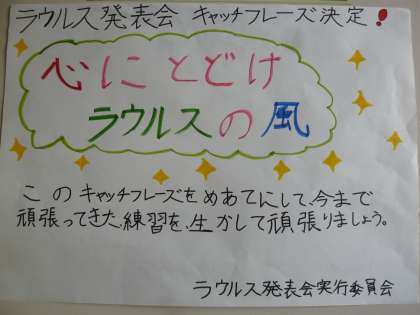 ラウルス発表会 キャッチフレーズ決定!
心にとどけ
ラウルスの風
このキャッチフレーズをめあてにして、今まで
頑張ってきた練習を、生かして頑張りましょう。
ラウルス発表会実行委員会